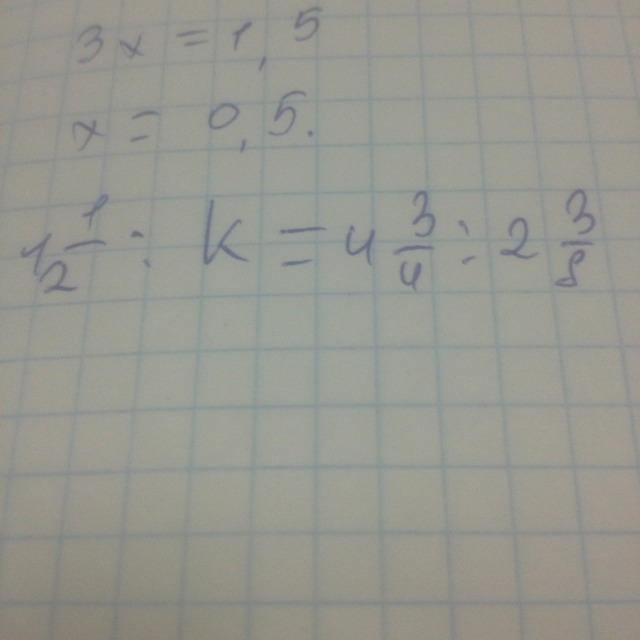 3x = 1,5
x = 0,5.
1 1/2 : k = 4 3/4 : 2 3/8